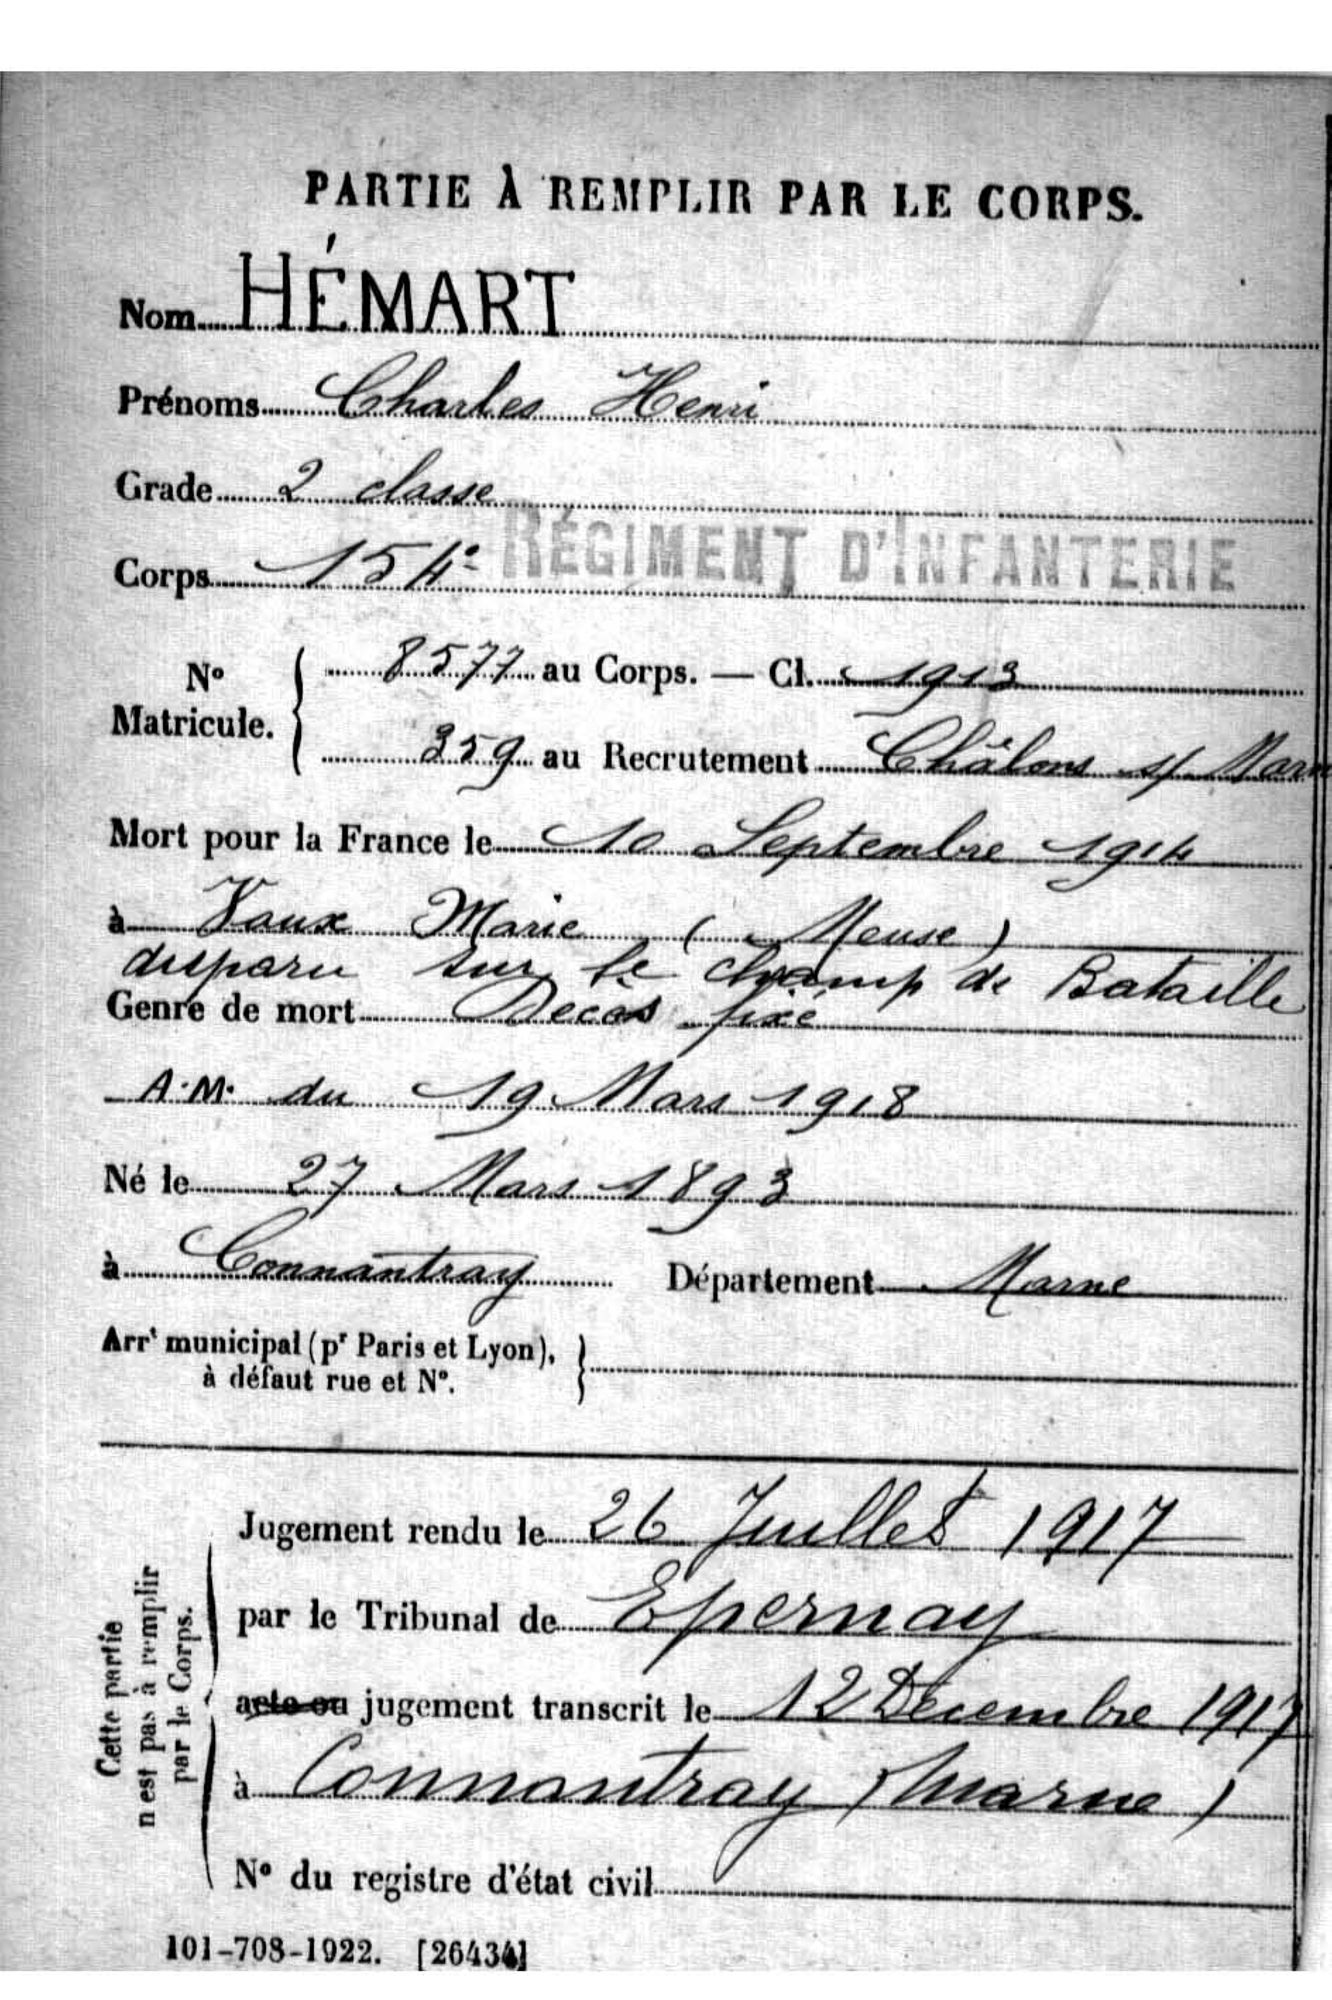 PARTIE À REMPLIR PAR LE CORPS.
Nom HÉMART
Prénoms Charles Henri
Grade 2 classe
Corps 154e RÉGIMENT D'INFANTERIE
No Matricule. { 8577 au Corps. — Cl. 1913
359 au Recrutement Châlons s/ Marne
Mort pour la France le 10 Septembre 1914
à Vaux Marie (Meuse)
disparu sur le champ de Bataille
Genre de mort Décès fixé
A.M. du 19 Mars 1918
Né le 27 Mars 1893
à Connantray Département Marne
Arrt municipal (pr Paris et Lyon),
à défaut rue et No.
Cette partie
n'est pas à remplir
par le Corps.
Jugement rendu le 26 Juillet 1917
par le Tribunal de Epernay
acte ou jugement transcrit le 12 Décembre 1917
à Connantray (Marne)
No du registre d'état civil
101-708-1922. [26434]